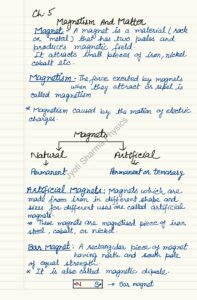 Ch: 5
Magnetism And Matter
Magnet: A magnet is a material (rock
or "metal) that has two poles and
produces magnetic field.
It attracts small pieces of iron, nickel
cobalt etc.
Magnetism:- The force exerted by magnets
when they attract or repel is
called magnetism
* Magnetism caused by the motion of electric
charges.
Magnets
Natural Artificial
Permanent Permanent or temporary
Artificial Magnets: Magnets which are
made from iron in different shape and
sizes for different uses are called artificial
magnets.
* These magnets are magnetised piece of iron
steel, cobalt, or nickel.
Bar Magnet: A rectangular piece of magnet
having north and south pole
of equal strength.
* It is also called magnetic dipole.
N S → Bar magnet